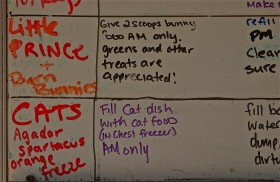 Make
Little
PRINCE
+
Barn
Bunnies
Give 2 scoops bunny
food AM only.
greens and other
treats are
appreciated!
refill
PM
Clean
sure
CATS
Agador
Spartacus
orange
freeze
Fill Cat dish
with cat food
(in Chest freezer)
AM only
fill bo
water
dump
dirt